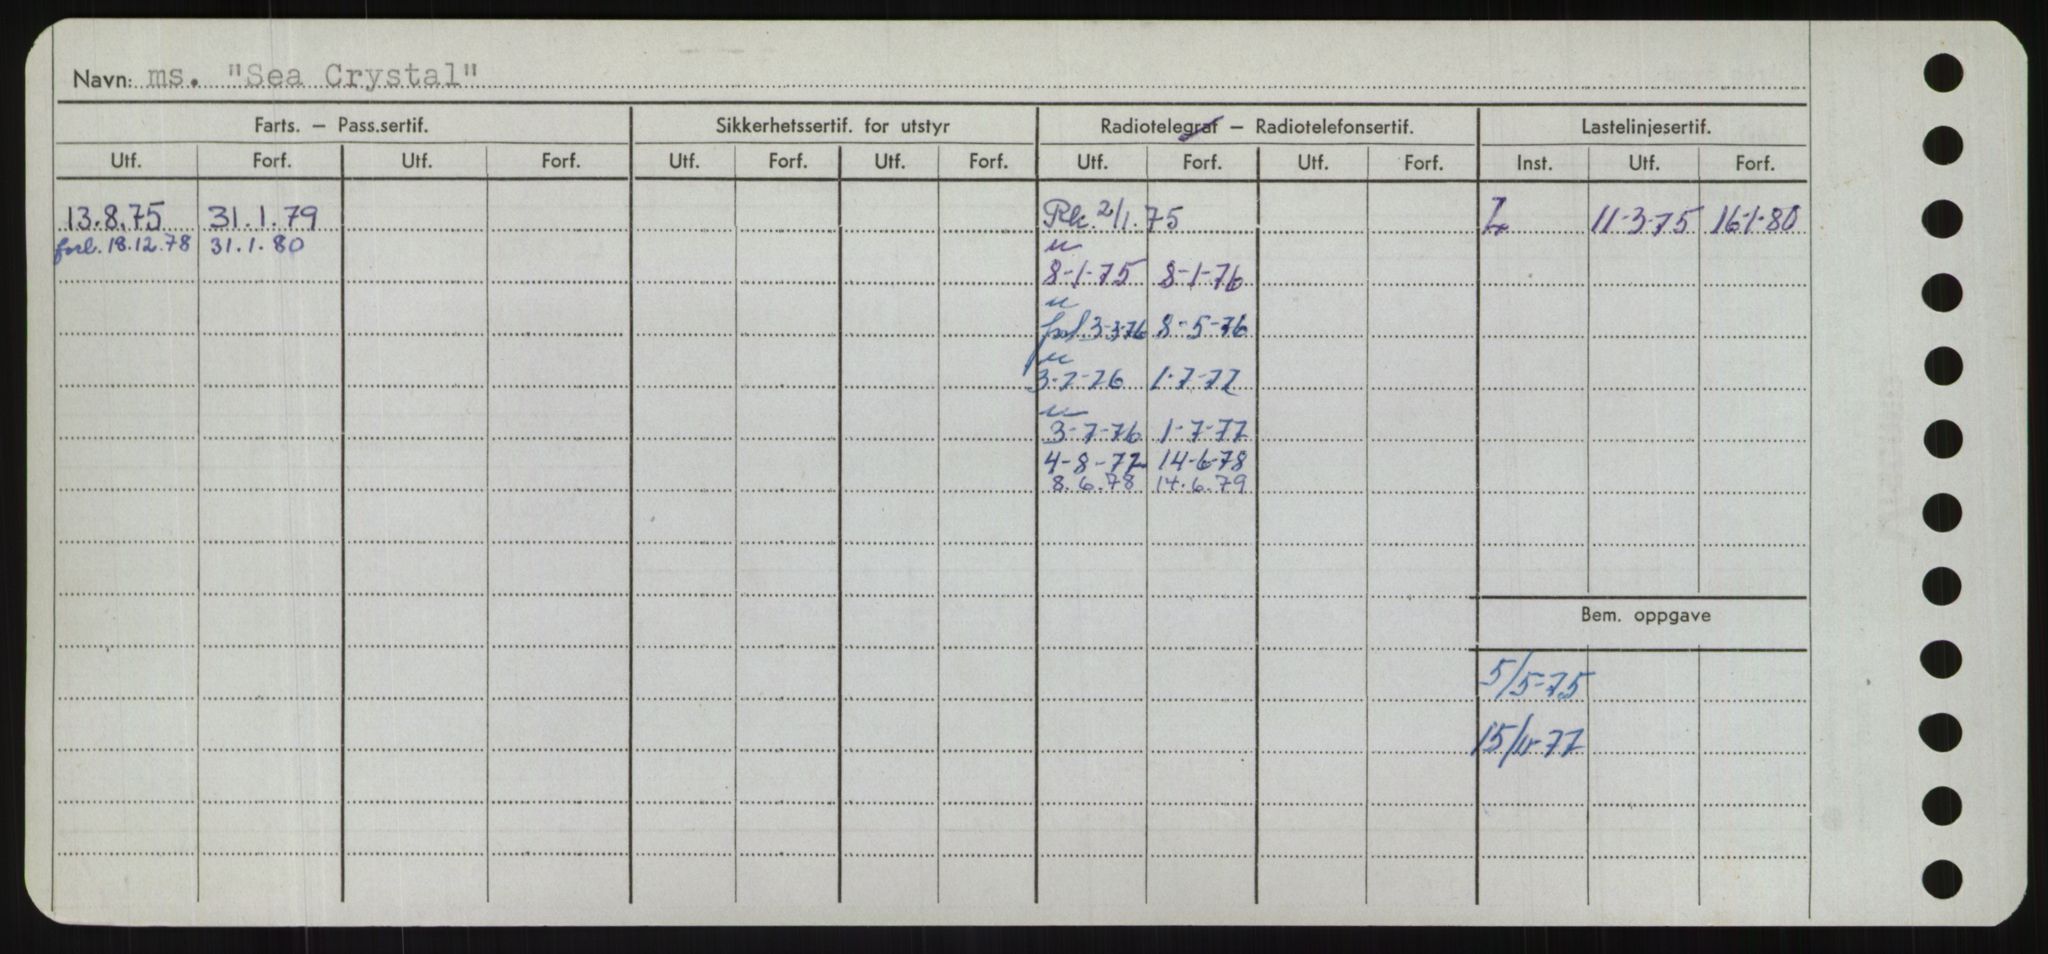 Navn: ms. "Sea Crystal"
Farts. – Pass.sertif. Sikkerhetssertif. for utstyr Radiotelegraf – Radiotelefonsertif. Lastelinjesertif.
Utf. Forf. Utf. Forf. Utf. Forf. Utf. Forf. Utf. Forf. Utf. Forf. Inst. Utf. Forf.
13.8.75 31.1.79 Rk. 2/1.75 11-3-75 16-1-80
forl. 18.12.78 31.1.80
8-1-75 8-1-76
3-3-76 8-5-76
3-7-76 1-7-77
3-7-76 1-7-77
4-8-77 14-6-78
8.6.78 14.6.79
Bem. oppgave
5/5-75
15/11-77